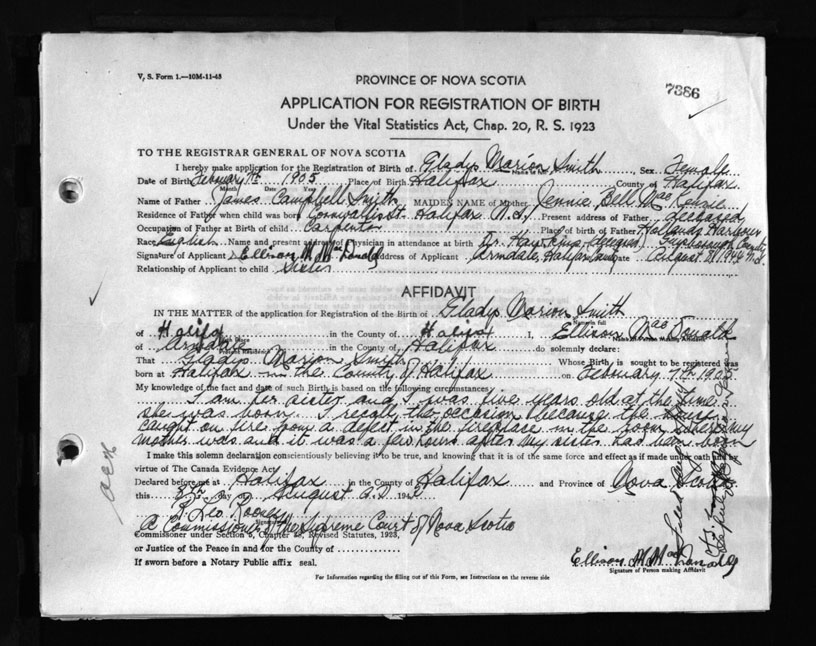 V. S. Form 1.—10M-11-43
7386
PROVINCE OF NOVA SCOTIA
APPLICATION FOR REGISTRATION OF BIRTH
Under the Vital Statistics Act, Chap. 20, R. S. 1923
TO THE REGISTRAR GENERAL OF NOVA SCOTIA
I hereby make application for the Registration of Birth of Gladys Marion Smith Sex Female
Date of Birth February 7th 1905 Place of Birth Halifax County of Halifax
Month Date Year
Name of Father James Campbell Smith MAIDEN NAME of Mother Jennie Bell MacKenzie
Residence of Father when child was born Cornwallis St. Halifax N.S. Present address of Father deceased
Occupation of Father at Birth of child Carpenter Place of birth of Father Hollands Harbour
Race English Name and present address of Physician in attendance at birth Dr. Guysborough County
Signature of Applicant Ellison M. MacDonald Address of Applicant Armdale, Halifax County Date August 8 N.S.
Relationship of Applicant to child Sister
AFFIDAVIT
IN THE MATTER of the application for Registration of the Birth of Gladys Marion Smith
Name in full
of Halifax in the County of Halifax I, Ellison MacDonald
Name in full of Person Making Affidavit
of Armdale in the County of Halifax do solemnly declare:
That Gladys Marion Smith Whose Birth is sought to be registered was
born at Halifax in the County of Halifax on February 7th 1905
My knowledge of the fact and date of such Birth is based on the following circumstances
I am her sister and I was five years old at the time
she was born. I recall the occasion because the house
caught on fire from a defect in the fireplace in the room where my
mother was and it was a few hours after my sister had been born
I make this solemn declaration conscientiously believing it to be true, and knowing that it is of the same force and effect as if made under oath and by
virtue of The Canada Evidence Act
Declared before me at Halifax in the County of Halifax and Province of Nova Scotia
this 8th day of August A.D.
B. Leo Rooney
A Commissioner of the Supreme Court of Nova Scotia
Commissioner under Section 5, Chapter Revised Statutes, 1923,
or Justice of the Peace in and for the County of
If sworn before a Notary Public affix seal.
Ellison M. MacDonald
Signature of Person making Affidavit
For Information regarding the filling out of this Form, see Instructions on the reverse side